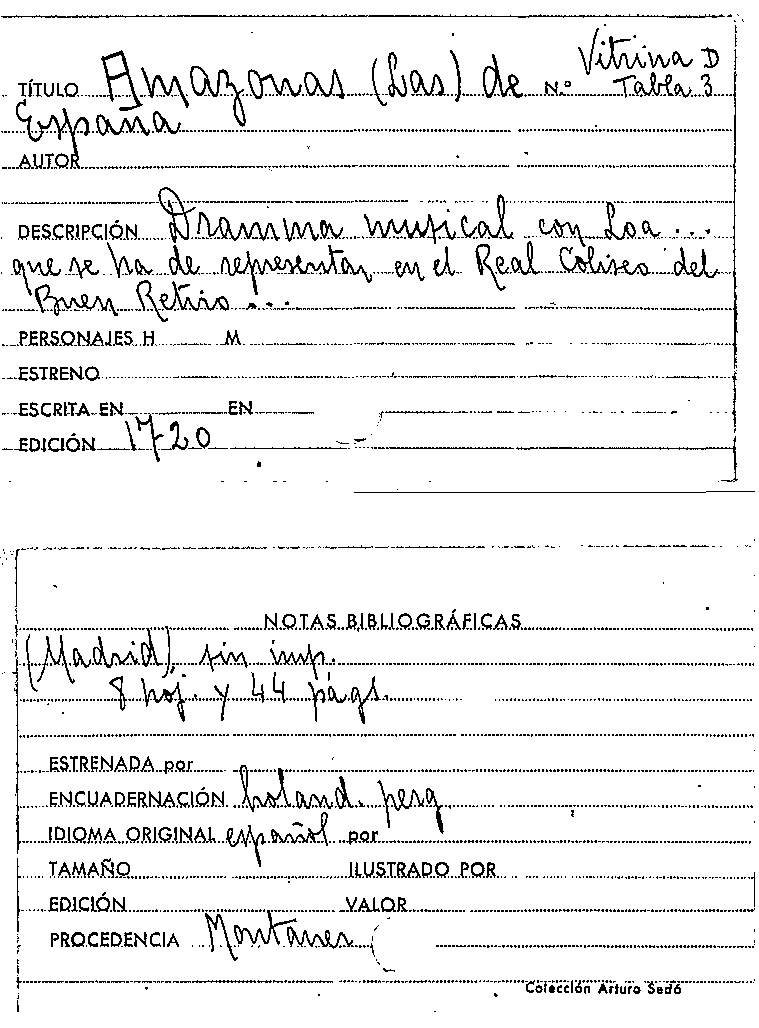 TÍTULO Amazonas (Las) de N.º Vitrina D
Tabla 3
España
AUTOR
DESCRIPCIÓN Dramma musical con Loa ...
que se ha de representar en el Real Coliseo del
Buen Retiro ...
PERSONAJES H M
ESTRENO
ESCRITA EN EN
EDICIÓN 1720
NOTAS BIBLIOGRÁFICAS
(Madrid), sin imp.
8 hoj. y 44 págs.
ESTRENADA por
ENCUADERNACIÓN holand. perg
IDIOMA ORIGINAL español por
TAMAÑO ILUSTRADO POR
EDICIÓN VALOR
PROCEDENCIA Montaner
Colección Arturo Sedó